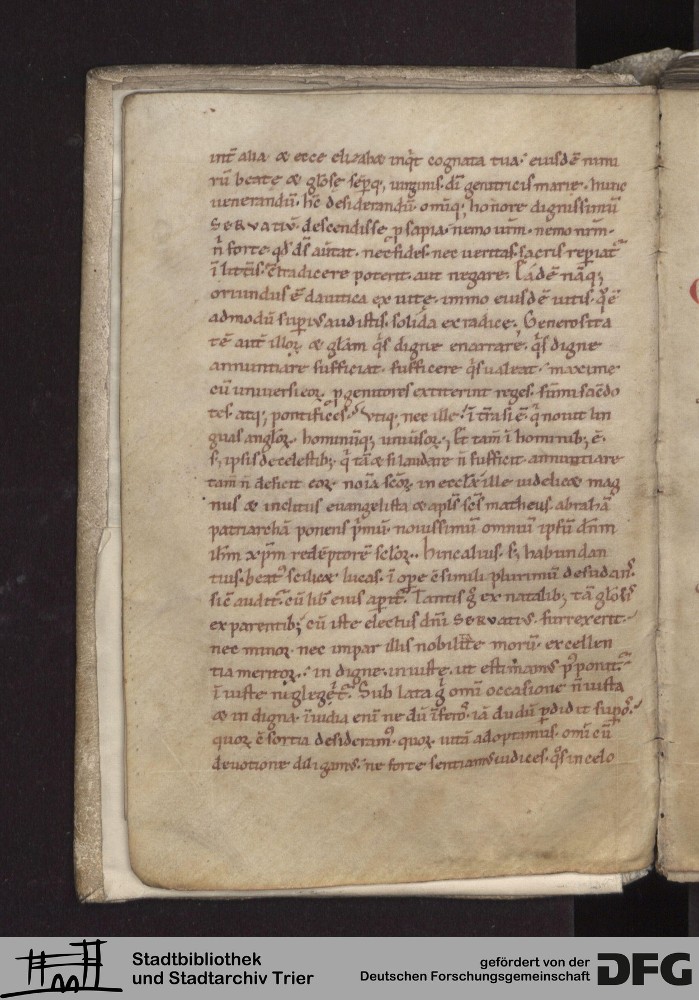 int̄ alia· & ecce elizabæ inqt̄ cognata tua· eiusdē nim̄
rū beatę & glosę sēpq; uirginis· dī genitricis marię· hunc
uenerandū· hc̄ desiderandū· omīq; honore dignissimū
SERVATIV̄· descendisse psapia· nemo um̄· nemo nr̄m·
n̄ forte qd̄ ds̄ auertat· nec fides· nec ueritas· sacris
ī litt̄is· ct̄radicere poterit· aut negare· Eadē nāq;
oriundus ē dauitica ex uite· immo eiusdē uitis· qē
admodū superius audistis· solida ex radice· Generosita
tē aut̄ illoꝝ & glam̄ qs̄ digne enarrare· qs̄ digne
annuntiare sufficiat· sufficere qs̄ ualeat· maxime
cū uniuersi eoꝝ pgenitores extiterint reges· summi sacēdo
tes· atq; pontifices· Vtiq; nec ille· ī tr̄a si ē q̄ nouit lin
guas angloꝝ· hominūq; uniūsoꝝ· Et tam̄ ī hominib; ē·
s; ipsis decelestib; q̄ tā & si laudare n̄ sufficit· annuntiare
tam̄ n̄ deficit eoꝝ noīa scōꝝ in ecclā· ille uidelicæ mag
nus & inclitus euangelista & apls̄ scs̄ matheus abrahā
patriarchā ponens pmū· nouissimū omniū ipsū dn̄m
ihm̄ xpm̄ redēptorē scloꝝ· hinc alius· s; habundan
tius· beatus scilicæ lucas· ī ope c̄simili plurimū desudans·
sic̄ audit̄· cū lib̄ eius aperit̄· Tantis g̊ ex natalib; tā glosis
ex parentib; cū iste electus dn̄i SERVATIVS surrexerit·
nec minor· nec impar illis nobilitate morū· excellen
tia meritoꝝ· in digne· iniuste· ut estimamus pponit̄·
ī iuste negleget̄· Sub lata g̊ omī occasione n̄ iusta
& in digna· īuidia enī ne dū īferos· iā dudū pdidit supos·
quoꝝ c̄sortia desideramus· quoꝝ uitā adoptamus· omī cū
deuotione diligamus· ne forte sentiamus iudices· qs̄ in celo
Stadtbibliothek
und Stadtarchiv Trier
gefördert von der
Deutschen Forschungsgemeinschaft
DFG